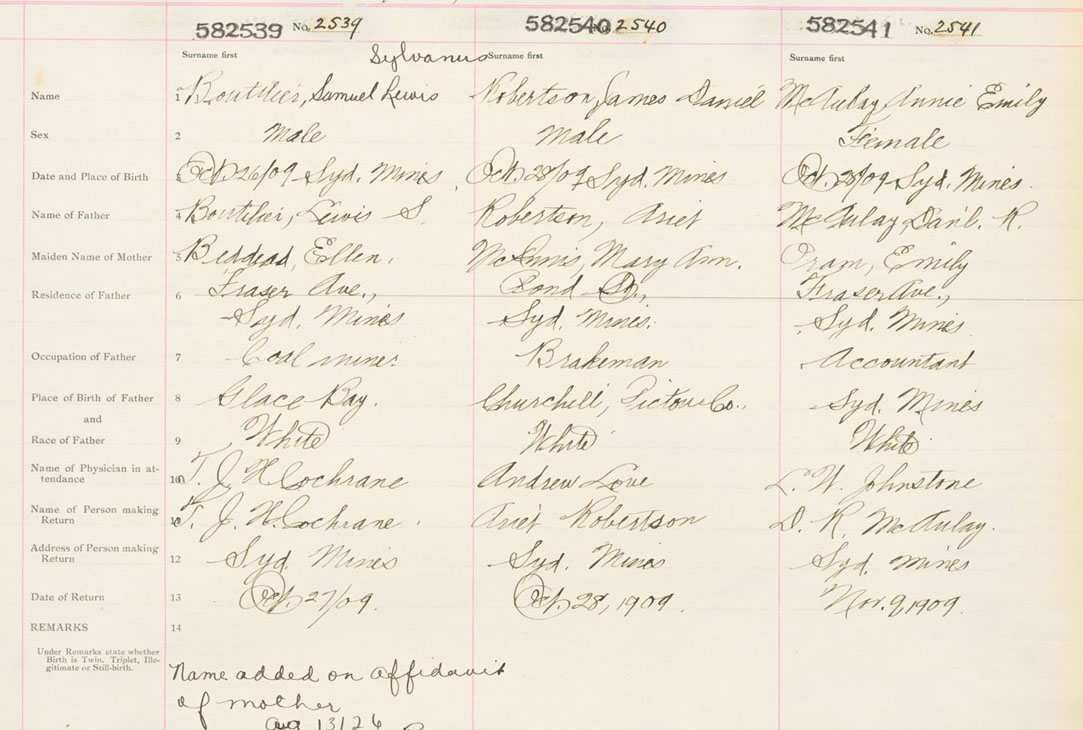 582539 No. 2539 582540 No. 2540 582541 No. 2541
Surname first Sylvanus Surname first Surname first
Name 1 Boutilier, Samuel Lewis Robertson, James Daniel McAulay, Annie Emily
Sex 2 Male Male Female
Date and Place of Birth 3 Oct. 26/09 Syd. Mines Oct. 28/09 Syd. Mines Oct. 28/09 Syd. Mines.
Name of Father 4 Boutilier, Lewis S. Robertson, Ariet McAulay, Danl. R.
Maiden Name of Mother 5 Beddead, Ellen. McInnis, Mary Ann. Oram, Emily
Residence of Father 6 Fraser Ave., Pond St., Fraser Ave.,
Syd. Mines Syd. Mines. Syd. Mines
Occupation of Father 7 Coal miner. Brakeman Accountant
Place of Birth of Father 8 Glace Bay. Churchill, Pictou Co. Syd. Mines
and
Race of Father 9 White White White
Name of Physician in at-
tendance 10 T. J. H. Cochrane Andrew Love L. W. Johnstone
Name of Person making
Return 11 T. J. H. Cochrane. Ariet Robertson D. R. McAulay.
Address of Person making
Return 12 Syd Mines Syd. Mines Syd. Mines
Date of Return 13 Oct. 27/09. Oct. 28, 1909. Nov. 9, 1909.
REMARKS 14
Under Remarks state whether
Birth is Twin, Triplet, Ille-
gitimate or Still-birth.
Name added on affidavit
of mother
Aug 13/26